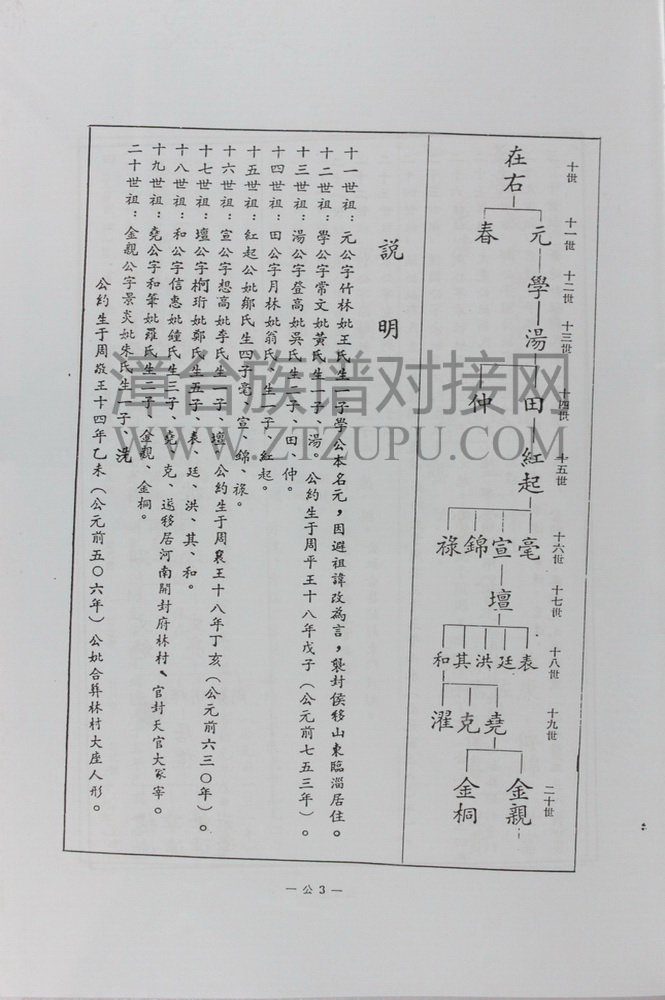 十世
十一世
十二世
十三世
十四世
十五世
十六世
十七世
十八世
十九世
二十世
在右
元
春
學
湯
田
仲
紅起
毫
宣
錦
祿
壇
表
廷
洪
其
和
堯
克
濯
金親
金桐
說明
十一世祖：元公字竹林妣王氏生一子學公本名元，因避祖諱改為言，襲封侯移山東臨淄居住。
十二世祖：學公字常文妣黃氏生一子、湯。公約生于周平王十八年戊子（公元前七五三年）。
十三世祖：湯公字登高妣吳氏生二子、田、仲。
十四世祖：田公字月林妣翁氏、生一子、紅起。
十五世祖：紅起公妣鄭氏生四子毫、宣、錦、祿。
十六世祖：宣公字想高妣李氏生一子、壇。公約生于周襄王十八年丁亥（公元前六三〇年）。
十七世祖：壇公字柯珩妣鄭氏生五子、表、廷、洪、其、和。
十八世祖：和公字信惠妣鍾氏生三子、堯、克、濯移居河南開封府林村、官封天官大冢宰。
十九世祖：堯公字和筆妣羅氏生二子、金親、金桐。
二十世祖：金親公字景炎妣朱氏生一子、洗
公約生于周敬王十四年乙未（公元前五〇六年）公妣合葬林村大座人形。
一公3一
漳台族谱对接网
WWW.ZTZUPU.COM